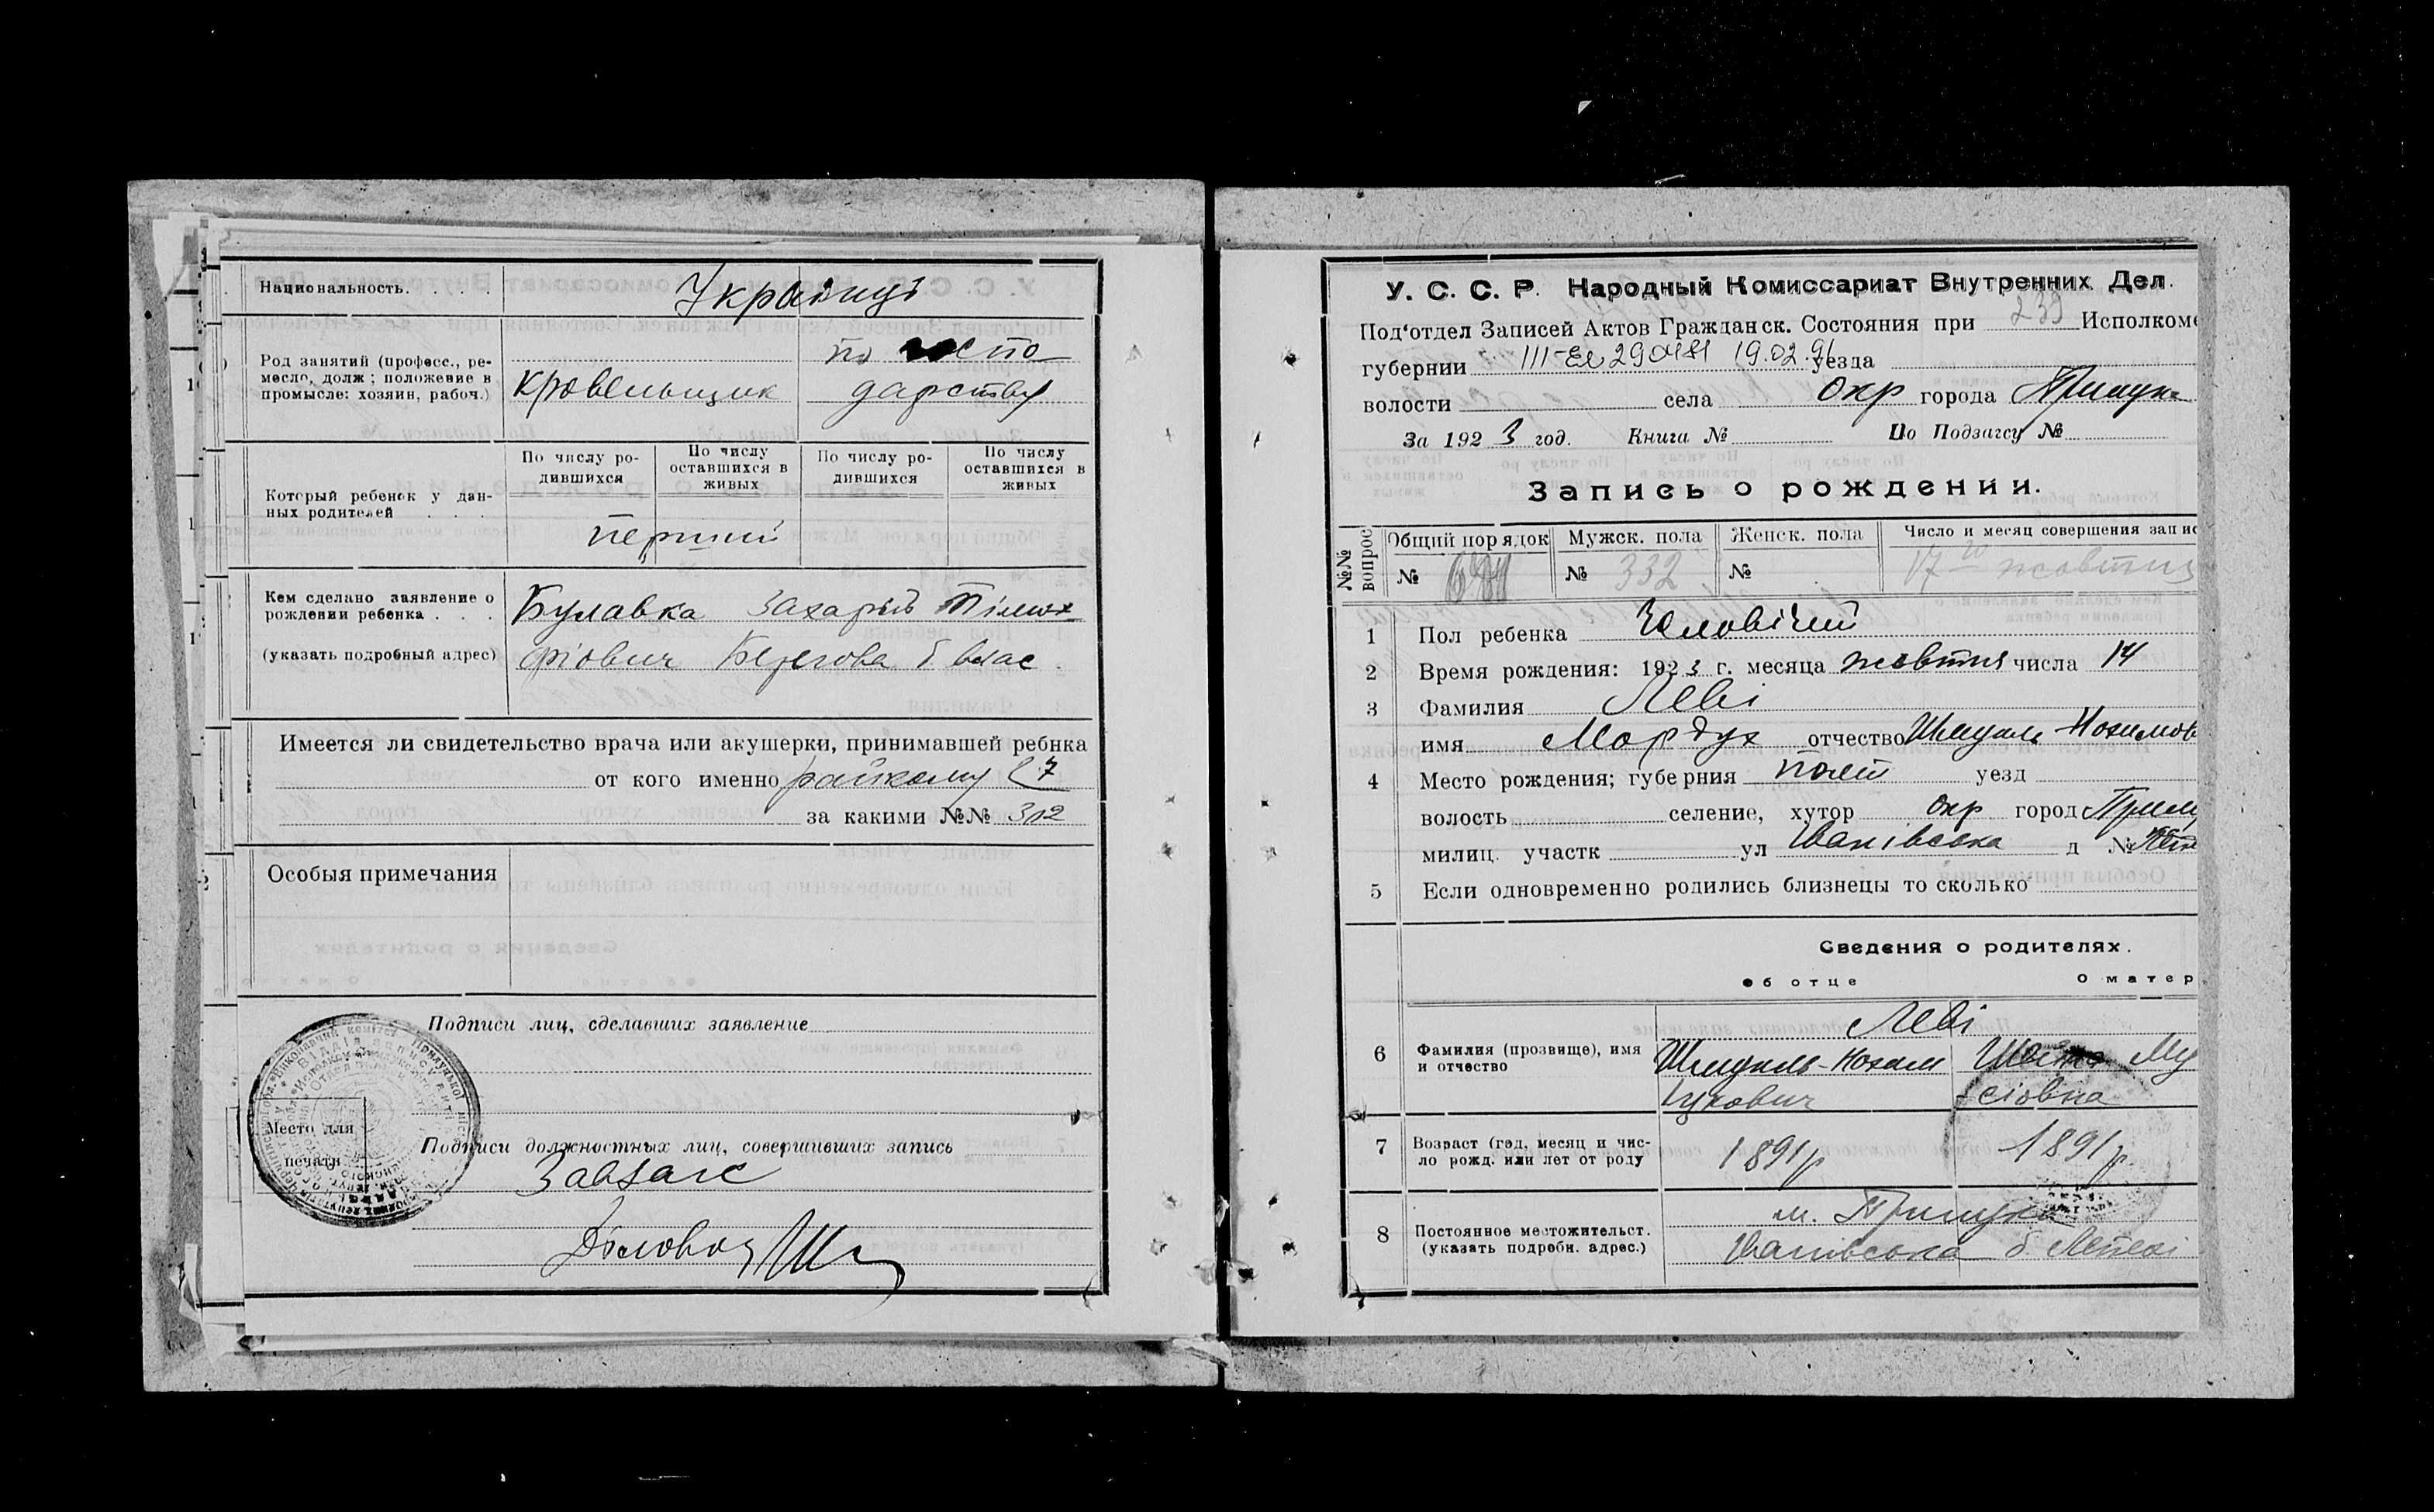 Национальность. . . .
Українці
Род занятий (професс., ре-
месло, долж; положение в
промысле: хозяин, рабоч.)
кровельщик
по госпо
дарству
Который ребенок у дан-
ных родителей . . .
По числу ро-
дившихся
По числу
оставшихся в
живых
По числу ро-
дившихся
По числу
оставшихся в
живых
перший
Кем сделано заявление о
рождении ребенка . . .
(указать подробный адрес)
Булавка Захарій Тімох
фіович Берегова б. влас.
Имеется ли свидетельство врача или акушерки, принимавшей ребнка
от кого именно райкому 7
за какими №№ 312
Особыя примечания
Подписи лиц, сделавших заявление
Место для
печати
Подписи должностных лиц, совершивших запись
Завзагс
У. С. С. Р. Народный Комиссариат Внутренних Дел.
Под'отдел Записей Актов Гражданск. Состояния при 239 Исполкоме
губернии III-Ел 290481 19.02.91 уезда
волости села окр города Прилук
За 1923 год. Книга № По Подзагсу №
Запись о рождении.
№№ вопрос
Общий порядок
Мужск. пола
Женск. пола
Число и месяц совершения запис
№
№ 332
№
17 жовтня
1 Пол ребенка Чоловічий
2 Время рождения: 1923 г. месяца жовтня числа 14
3 Фамилия Леві
имя Мордух отчество Шмуль Нохимов
4 Место рождения; губерния Полт уезд
волость селение, хутор окр город Прилу
милиц. участк ул Іванівська д №
5 Если одновременно родились близнецы то сколько
Сведения о родителях.
об отце
О матер
6 Фамилия (прозвище), имя
и отчество
Леві
Шмуль-Нохим
Іцкович
Му
сіовна
7 Возраст (год, месяц и чис-
ло рожд. или лет от роду
1891р
1891р.
8 Постоянное местожительст.
(указать подробн. адрес.)
м. Прилука
Іванівська б.